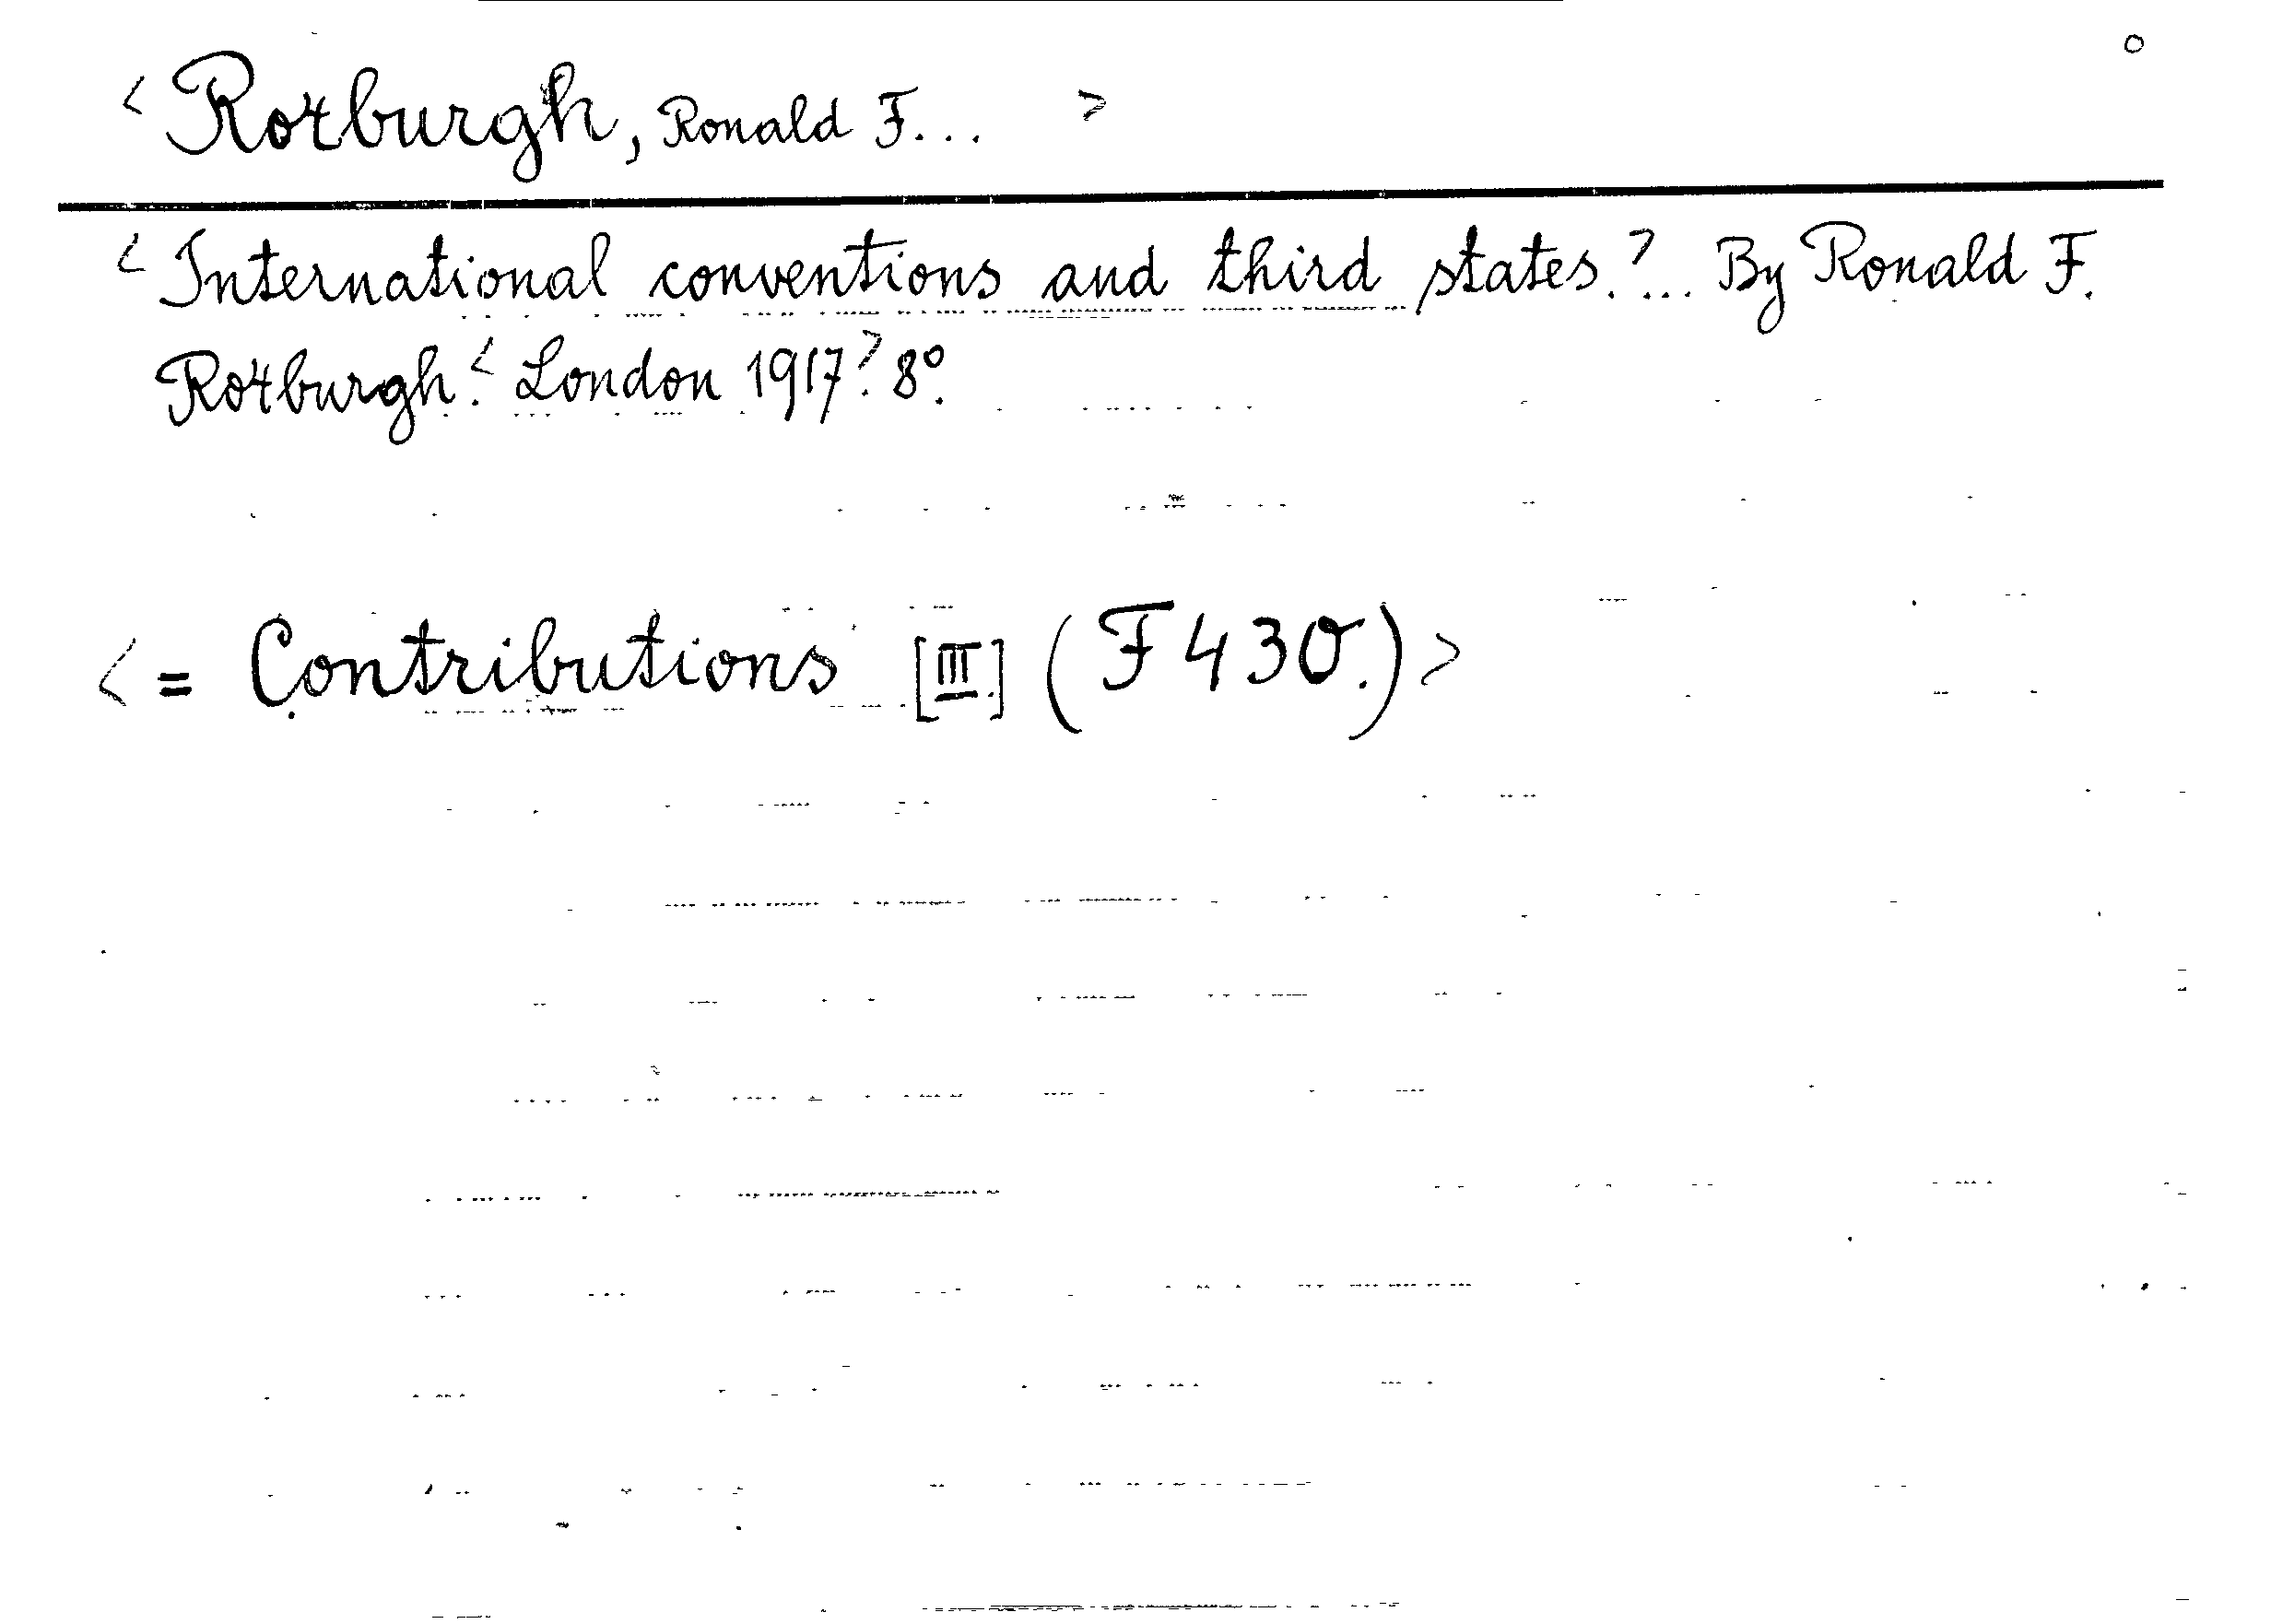 < Roxburgh, Ronald F... >
< International conventions and third states.> ... By Ronald F.
Roxburgh.< London 1917> 8°.
< = Contributions [III] (F 430.) >